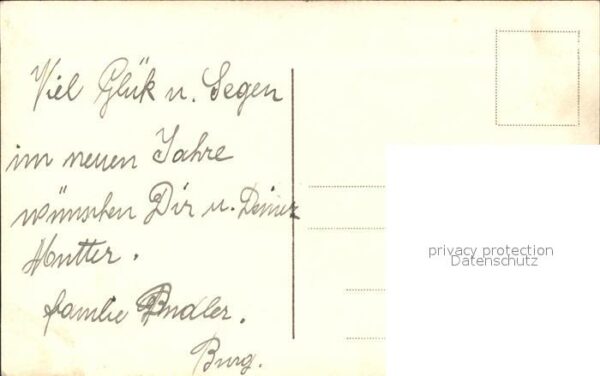 Viel Glük u. Segen
im neuen Jahre
wünschen Dir u. Deiner
Mutter.
familie Budler.
Burg.
privacy protection
Datenschutz